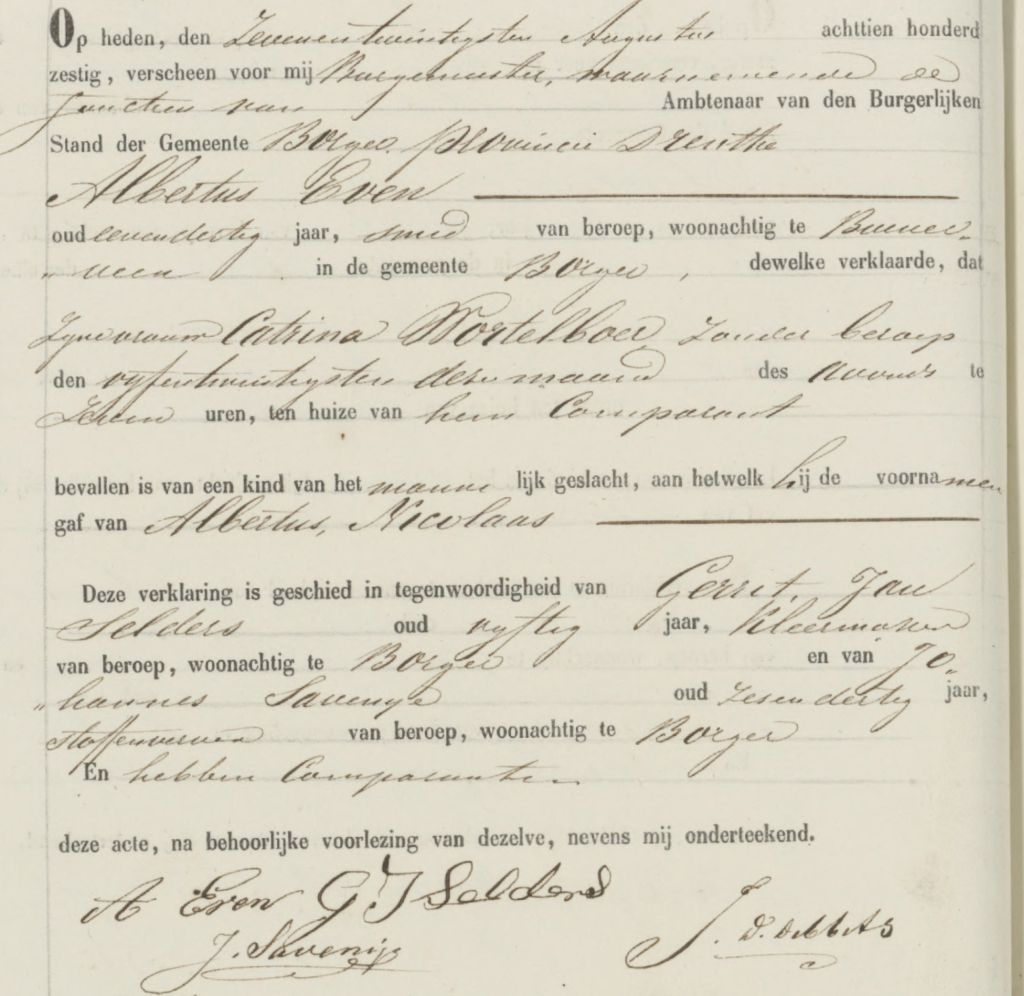 Op heden, den Zevenentwintigsten Augustus achttien honderd
zestig, verscheen voor mij Burgemeester, waarnemende de
functien van Ambtenaar van den Burgerlijken
Stand der Gemeente Borger provincie Drenthe
Albertus Even
oud eenendertig jaar, smid van beroep, woonachtig te Buiner-
"veen in de gemeente Borger, dewelke verklaarde, dat
Zyne vrouw Catrina Wortelboer, zonder beroep
den vyfentwintigsten dezer maand des avonds te
Zeven uren, ten huize van hem Comparant
bevallen is van een kind van het manne lijk geslacht, aan hetwelk hij de voornamen
gaf van Albertus, Nicolaas
Deze verklaring is geschied in tegenwoordigheid van Gerrit, Jan
Selders oud vyftig jaar, Kleermaker
van beroep, woonachtig te Borger en van Jo„
„hannes Savenye oud zesendertig jaar,
stoffenverver van beroep, woonachtig te Borger
En hebben Comparanten
deze acte, na behoorlijke voorlezing van dezelve, nevens mij onderteekend.
A Even G J Selders
J. Savenije J. D. Debbets